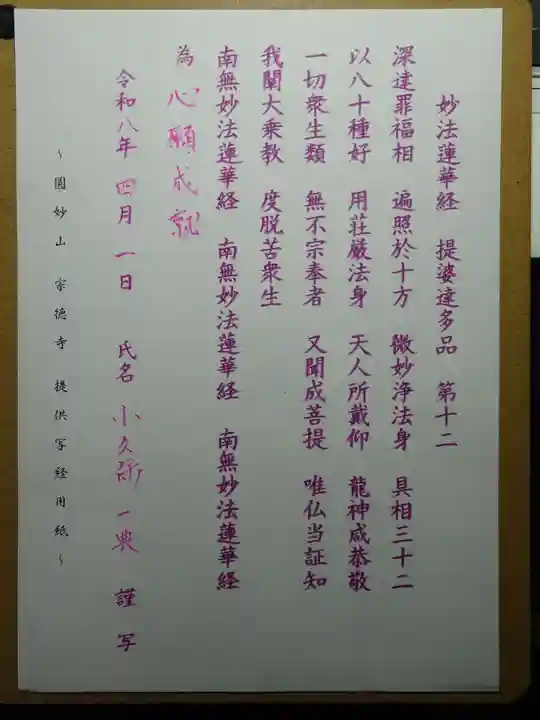 妙法蓮華経 提婆達多品 第十二
深達罪福相 遍照於十方 微妙浄法身 具相三十二
以八十種好 用荘厳法身 天人所戴仰 龍神咸恭敬
一切衆生類 無不宗奉者 又聞成菩提 唯仏当証知
我闡大乗教 度脱苦衆生
南無妙法蓮華経 南無妙法蓮華経 南無妙法蓮華経
為 心願成就
令和八年 四月一日 氏名 小久 一典 謹写
~ 圓妙山 宗徳寺 提供写経用紙 ~